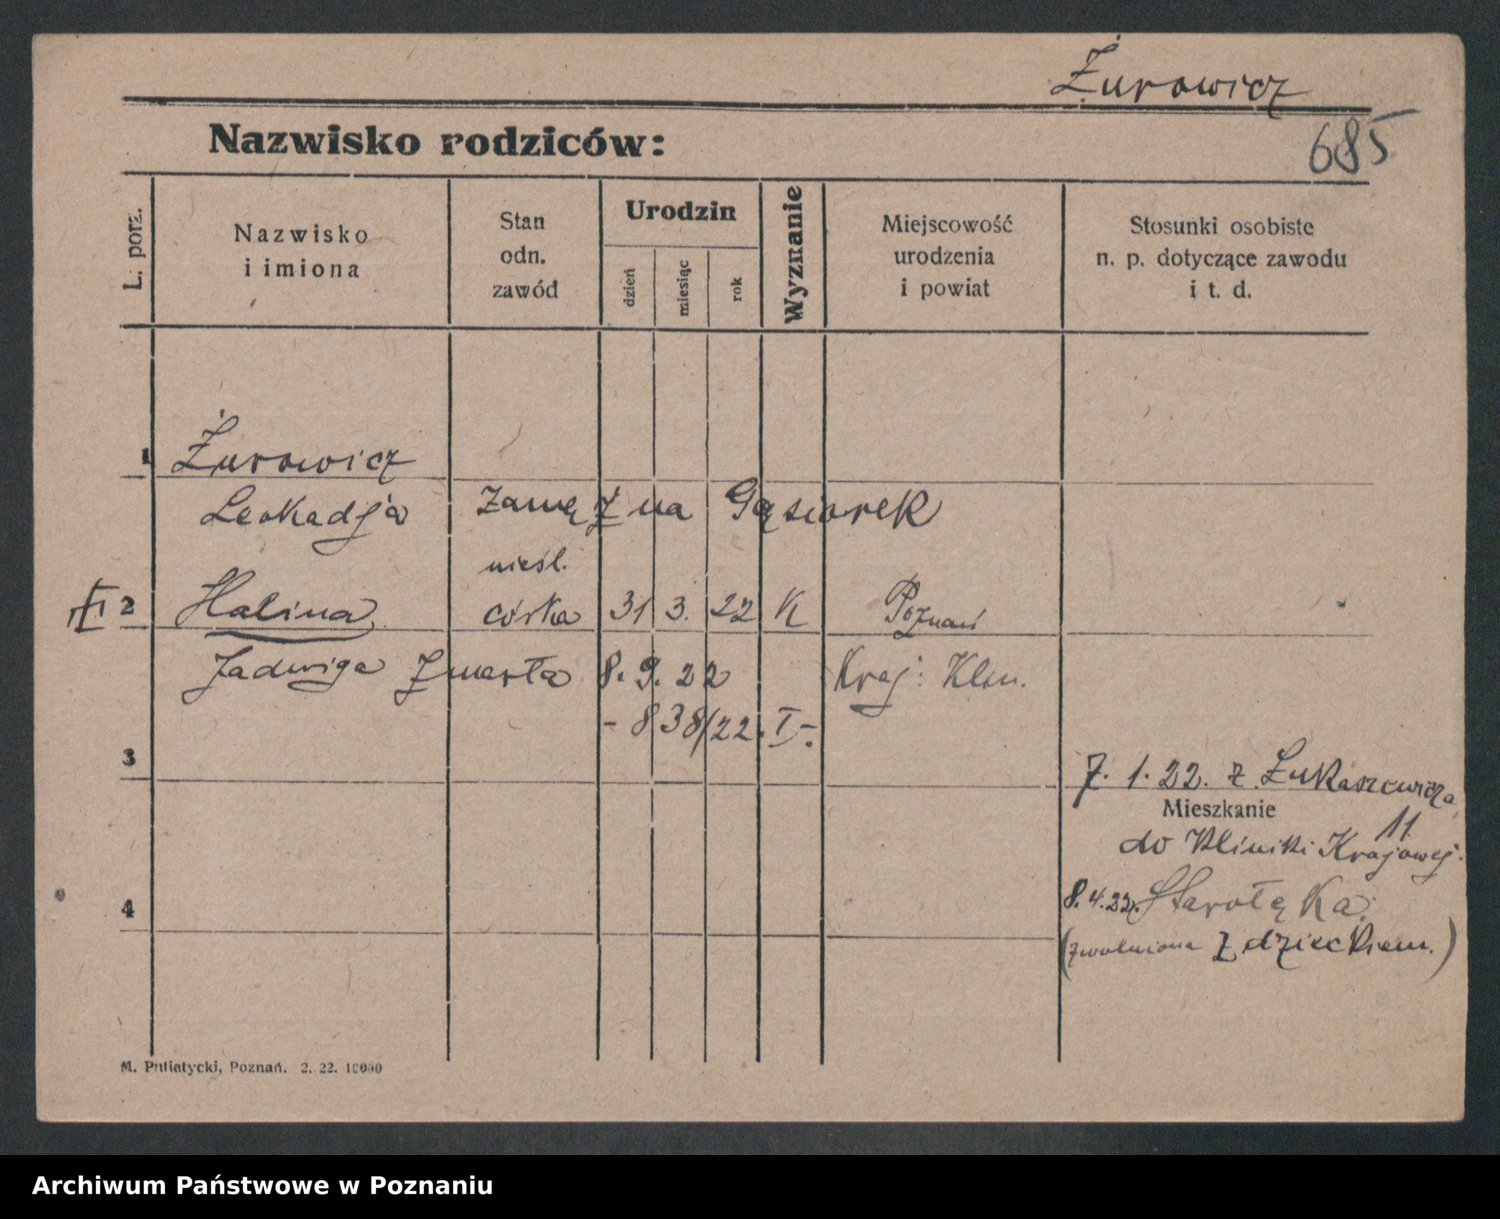 Żurowicz
685
Nazwisko rodziców:
L. porz.
Nazwisko
i imiona
Stan
odn.
zawód
Urodzin
dzień
miesiąc
rok
Wyznanie
Miejscowość
urodzenia
i powiat
Stosunki osobiste
n. p. dotyczące zawodu
i t. d.
1 Żurowicz
Leokadja zamężna Gąsiorek
nieśl.
2 Halina córka 31 3. 22 K Poznań
Jadwiga zmarła 8. 9. 22 Kraj: Klin.
- 838/22. I -.
3
7. 1. 22. z Łukaszewicza
Mieszkanie
11
do Kliniki Krajowej.
4
8.4.22. Starołęka.
(zwolniona z dzieckiem.)
M. Putiatycki, Poznań. 2. 22. 10000
Archiwum Państwowe w Poznaniu